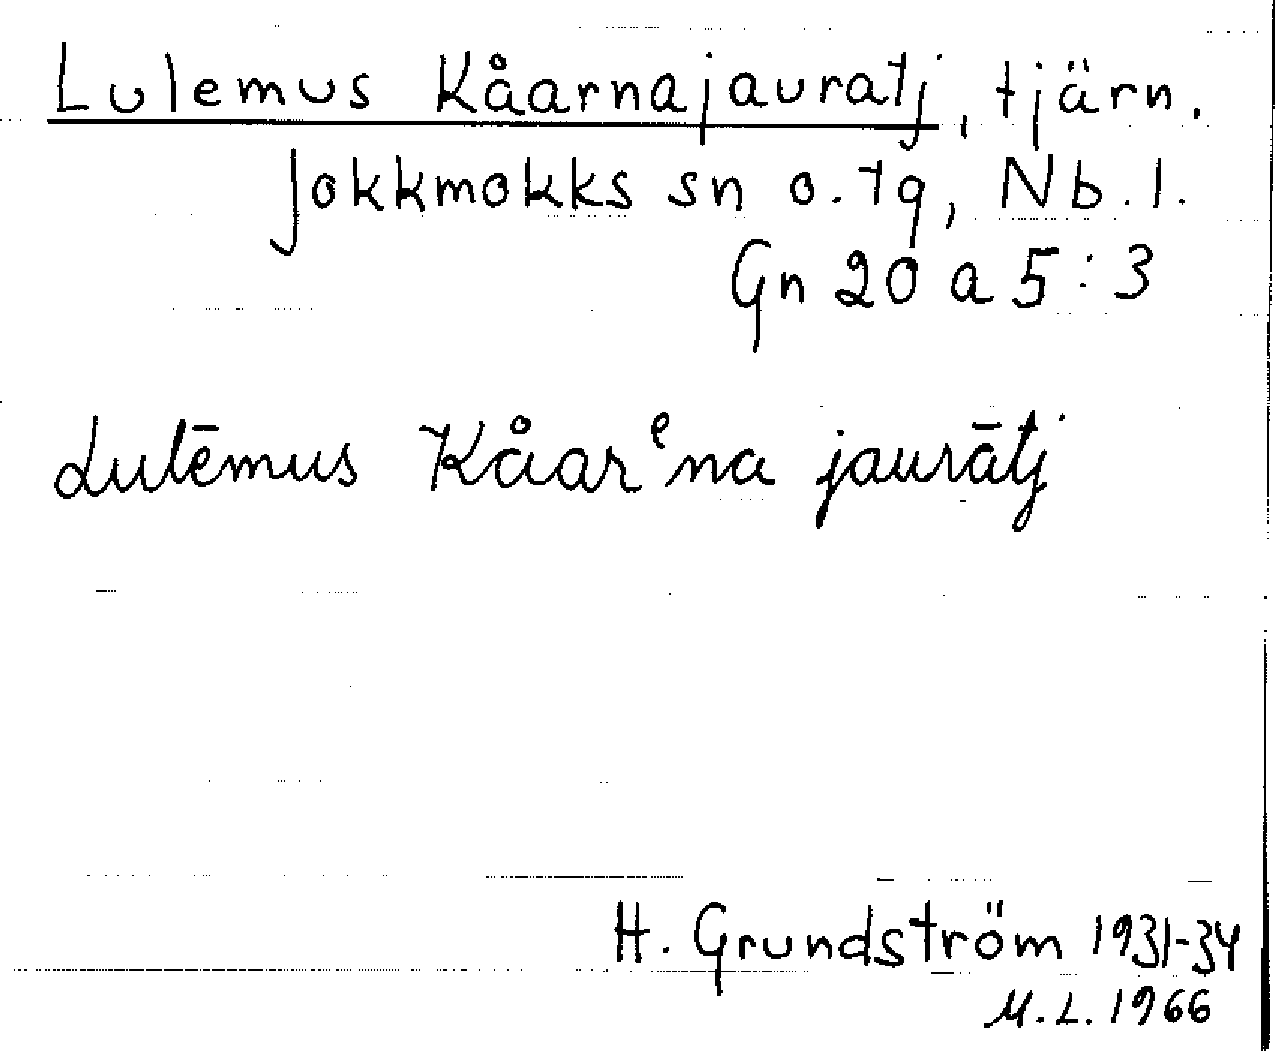 Lulemus Kåarnajauratj, tjärn.
Jokkmokks sn o. tg, Nb. l.
Gn 20 a 5:3
Lulēmus Kåarᵉna jaurātj
H. Grundström 1931-34
M. L. 1966